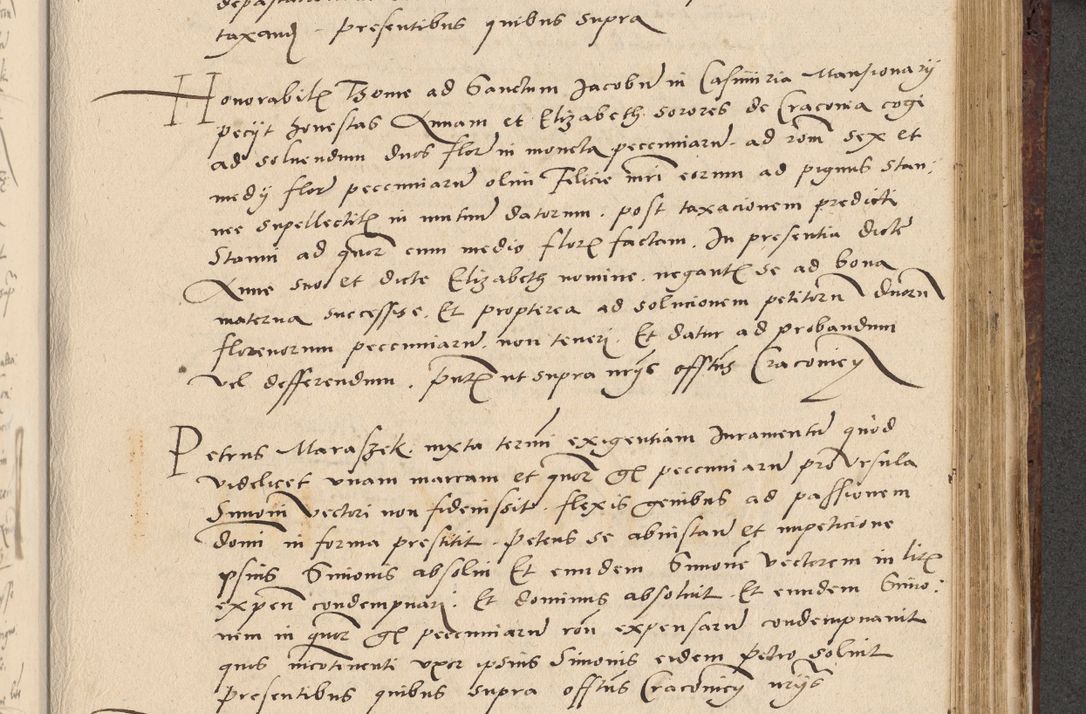 taxand. Presentibus quibus supra
Honorabilis Thome ad Sanctum Jacobum in Casimiria Mansionarij
pecijt honestas Annam et Elizabeth sorores de Cracovia cogi
ad solvendum duos flor in moneta pecuniarum ad rom sex et
medij flor pecuniarum olim Felicie mri eorum ad pignus Stan:
nee supellectilis in mutuum datorum. post taxacionem predicti
Stanni ad quor cum medio floren factam. In presentia dicte
Anne suo et dicte Elizabeth nomine. negantis se ad bona
materna successisse. Et propterea ad solucionem petitorum duorum
florenorum pecuniarum. non teneri. Et datur ad probandum
vel defferendum. Pntibus ut supra nrijs offtus Cracovien
Petrus Maraszek. iuxta termi exigentiam Iuramentum quod
videlicet unam marcam et quor gl pecuniarum pro Ursula
Simoni vectori non fideiussit. flexis genibus ad passionem
domi in forma prestitit. Petens se ab instan et impeticione
ipsius Simonis absolvi Et eundem Simonem vectorem in litis
expen condempnari. Et dominus absolvit. Et eundem Simo:
nem in quor gl pecuniarum ron expensarum condempnavit
quos incontinenti uxor ipsius Simonis eidem Petro solvit
Presentibus quibus supra offtus Cracovien nrijs